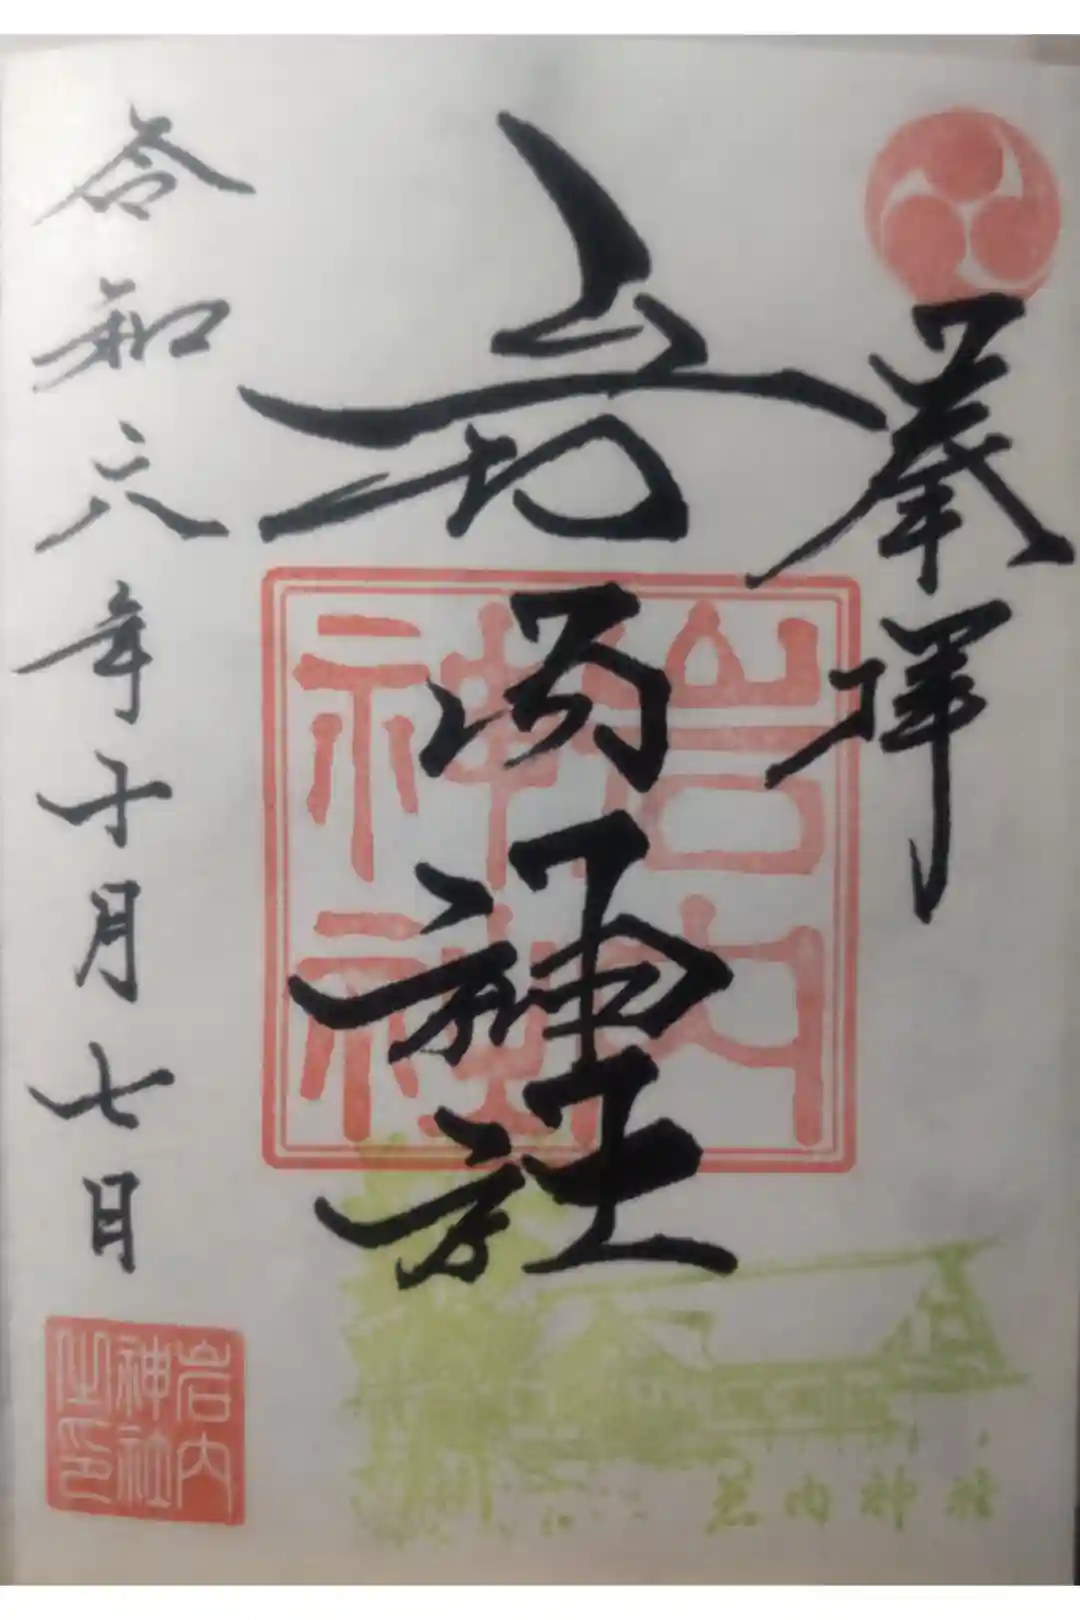 奉拝
岩内神社
岩内
神社
令和六年十月七日
岩内
神社
之印
岩内神社